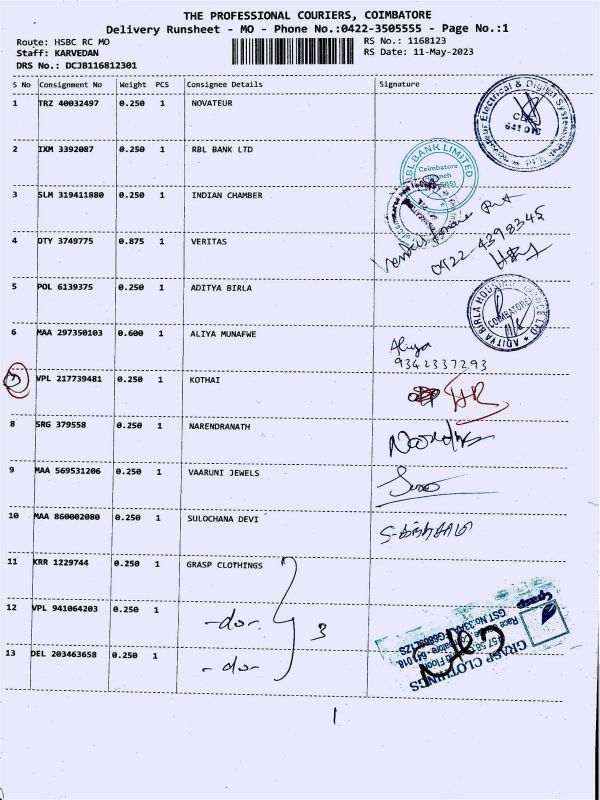 THE PROFESSIONAL COURIERS, COIMBATORE
Delivery Runsheet - MO - Phone No.:0422-3505555 - Page No.:1
Route: HSBC RC MO
RS No.: 1168123
Staff: KARVEDAN
RS Date: 11-May-2023
DRS No.: DCJB116812301
S No Consignment No Weight PCS Consignee Details Signature
1 TRZ 40032497 0.250 1 NOVATEUR
2 IXM 3392087 0.250 1 RBL BANK LTD
RBL BANK LIMITED
Coimbatore
3 SLM 319411880 0.250 1 INDIAN CHAMBER
4 OTY 3749775 0.875 1 VERITAS
0422-4398345
5 POL 6139375 0.250 1 ADITYA BIRLA
COIMBATORE
6 MAA 297350103 0.600 1 ALIYA MUNAFWE
Aliya
9342337293
7 VPL 217739481 0.250 1 KOTHAI
8 SRG 379558 0.250 1 NARENDRANATH
9 MAA 569531206 0.250 1 VAARUNI JEWELS
10 MAA 860002080 0.250 1 SULOCHANA DEVI
11 KRR 1229744 0.250 1 GRASP CLOTHINGS
12 VPL 941064203 0.250 1 -do-
3
13 DEL 203463658 0.250 1 -do-
Grasp
GRASP CLOTHINGS
1